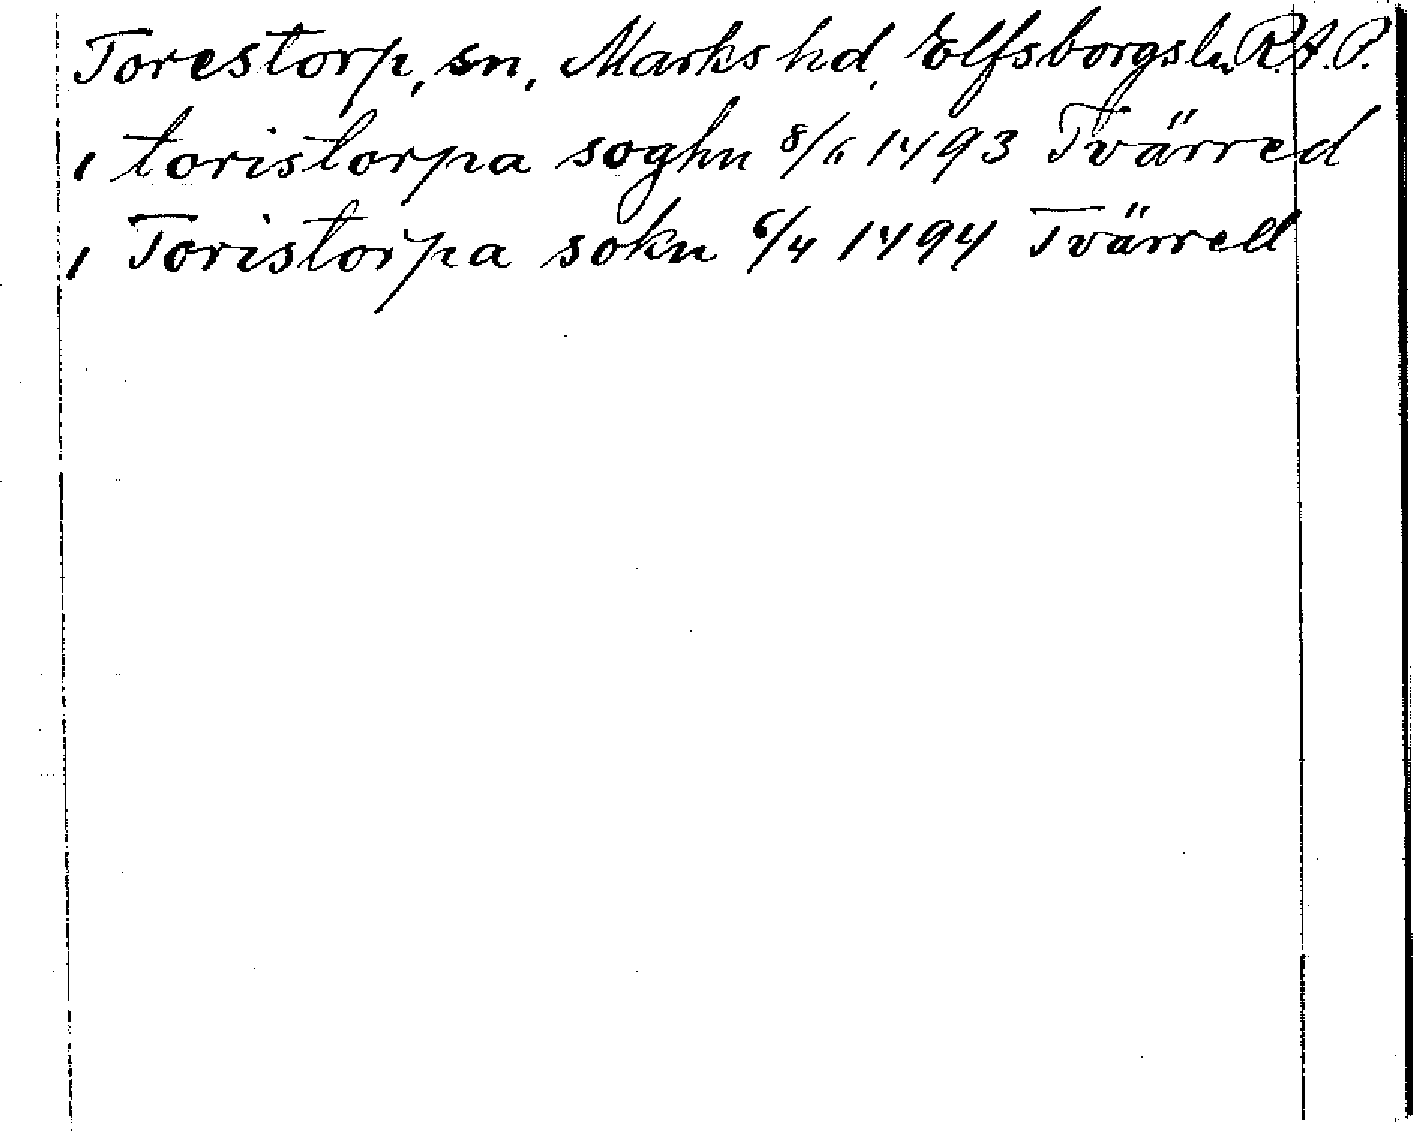 Torestorp, sn, Marks hd, Elfsborgs ln, R.A.P.
i toristorpa soghn 8/6 1493 Tvärred
i Toristorpa sokn 6/4 1494 Tvärred